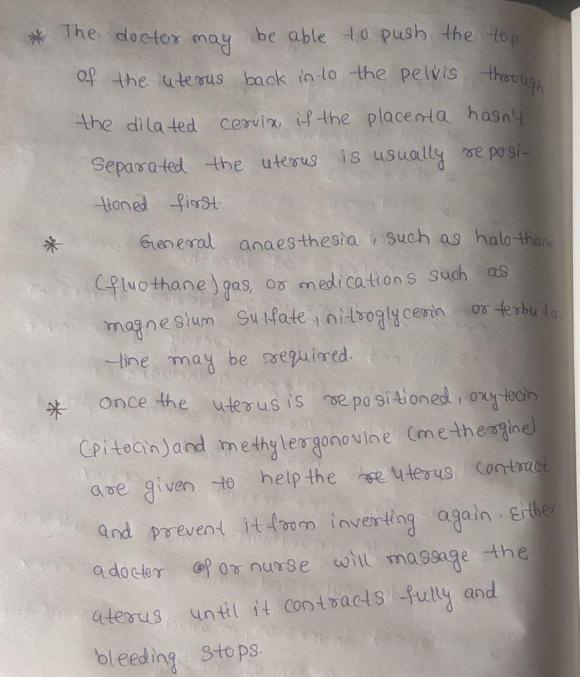 * The doctor may be able to push the top
of the uterus back in-to the pelvis through
the dilated cervix, if the placenta hasn't
Separated the uterus is usually reposi-
tioned first.
* General anaesthesia, such as halothane
(fluothane) gas, or medications such as
magnesium sulfate, nitroglycerin or terbuta
-line may be required.
* once the uterus is repositioned, oxytocin
(pitocin) and methylergonovine (methergine)
are given to help the uterus contract
and prevent it from inverting again. Either
a doctor or nurse will massage the
uterus until it contracts fully and
bleeding stops.